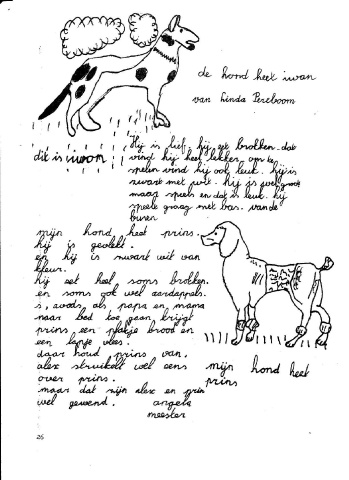 de hond heet iwan
van Linda Pereboom
dit is iwan
Hij is lief. hij eet brokken. dat
vind hij heel lekker. om te
spelen vind hij ook leuk. hij is
zwart met wit. hij is wel groot
maar speels en dat is leuk. hij
speelt graag met bas. van de
buren.
mijn hond heet prins.
hij is gevlekt.
en hij is zwart wit van
kleur.
hij eet heel soms brokken.
en soms ook wel aardappels.
s, avods, als papa en mama
naar bed toe gaan, krijgt
prins een plakje brood en
een lapje vlees.
daar houd prins van.
alex struikelt wel eens
over prins.
maar dat zijn alex en prins
wel gewend.
angela
meester
mijn hond heet
prins
26